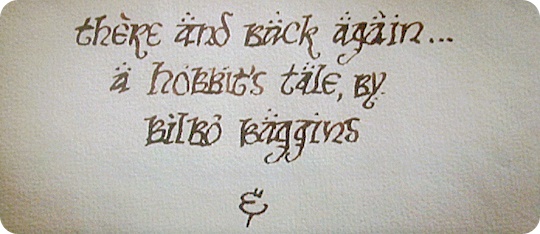 there and back again...
a hobbit's tale, by
bilbo baggins
&